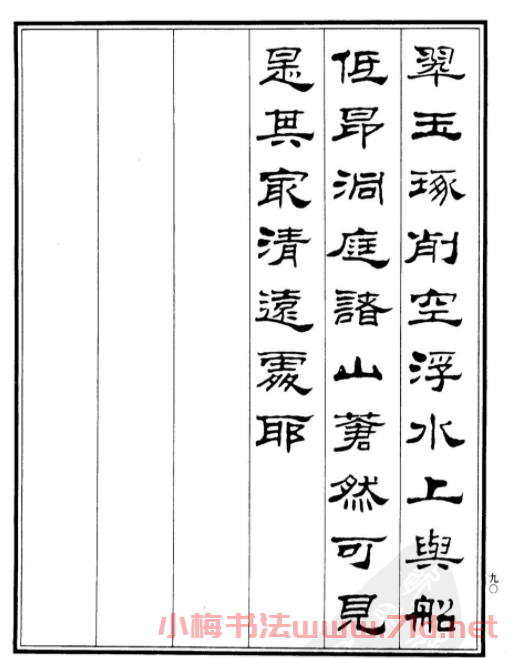 翠玉琢削空浮水上與船
低昂洞庭諸山蒼然可見
是其最清遠處耶
九〇
小梅书法www.71d.net